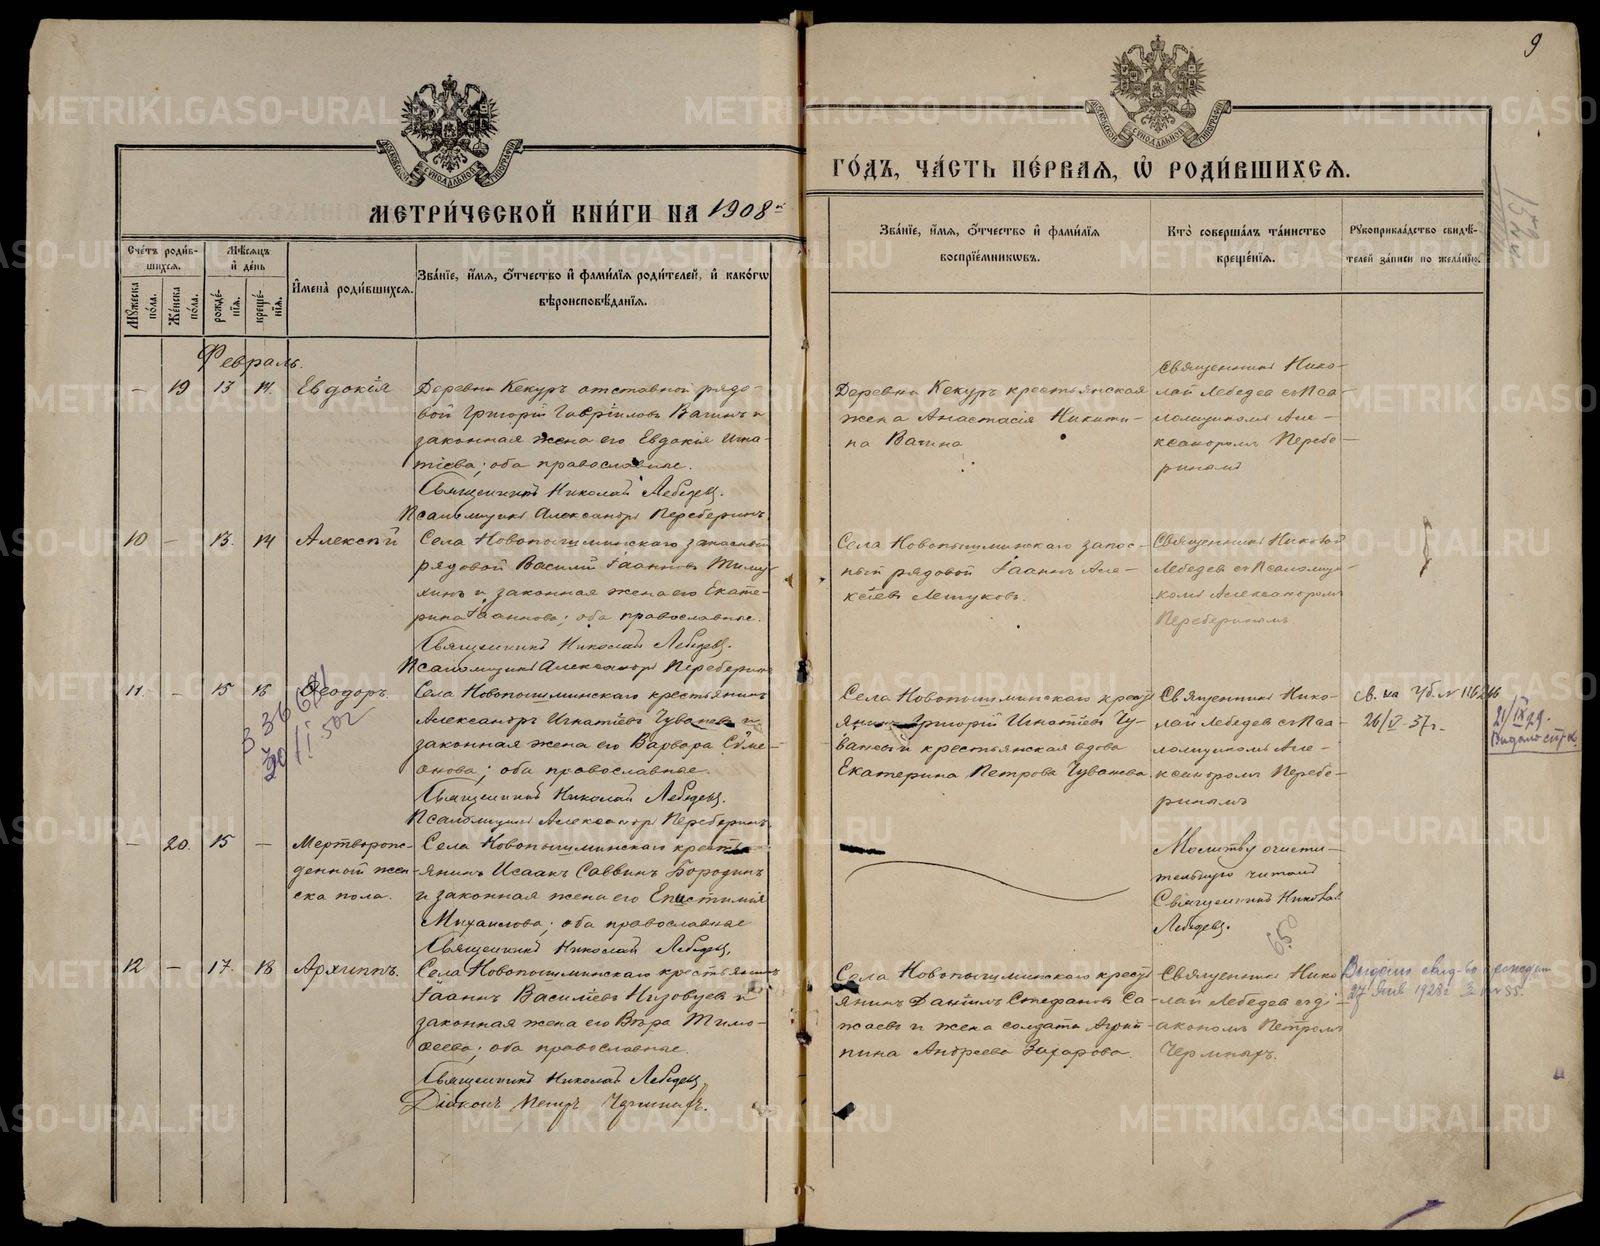 9
МЕТРИ́ЧЕСКОЙ КНИ́ГИ НА 1908 й
ГО́ДЪ, ЧА́СТЬ ПЕ́РВАЯ, Ѡ҆ РОДИ́ВШИХСЯ.
Сче́тъ роди́в-
шихся.
Му́жеска по́ла.
Же́нска по́ла.
Мѣ́сяцъ и҆ де́нь
рожде́-
нїя.
креще́-
нїя.
И҆мена̀ роди́вшихся.
Зва́нїе, и҆́мя, ѻ҆́тчество и҆ фами́лїя роди́телей, и҆ како́гѡ
вѣроисповѣ́данїя.
Зва́нїе, и҆́мя, ѻ҆́тчество и҆ фами́лїя
воспрїе́мникѡвъ.
Кто̀ соверша́лъ та́инство
креще́нїя.
Рꙋкоприкла́дство свидѣ́-
телей за́писи по жела́нїю.
Февраль.
— 19 13 14. Евдокія
Деревни Кекуръ отставной рядо-
вой Григорій Гавріиловъ Вагинъ и
законная жена его Евдокія Игна-
тіева; оба православные.
Священникъ Николай Лебедевъ.
Псаломщикъ Александръ Переберинъ.
Деревни Кекуръ крестьянская
жена Анастасія Никити-
на Вагина
Священникъ Нико-
лай Лебедев съ Пса-
ломщикомъ Але-
ксандромъ Перебе-
ринымъ
10 — 13. 14 Алексѣй
Села Новопышминскаго запасный
рядовой Василій Іоанновъ
и законная жена его Екате-
рина Іоаннова; оба православные.
Священникъ Николай Лебедевъ.
Псаломщикъ Александръ Переберинъ
Села Новопышминскаго запас-
ный рядовой Іоаннъ Але-
ксіевъ
Священникъ Николай
Лебедев съ Псаломщи-
комъ Александромъ
Переберинымъ
11. — 15 16 Ѳеодоръ.
Села Новопышминскаго крестьянинъ
Александръ Игнатіевъ Чуваневъ и
законная жена его Варвара Симе-
онова; оба православные.
Священникъ Николай Лебедевъ.
Псаломщикъ Александръ Переберинъ.
Села Новопышминскаго крест
янинъ Григорій Игнатіевъ Чу-
ваневъ и крестьянская вдова
Екатерина Петрова Чуванева
Священникъ Нико-
лай Лебедев съ Пса-
ломщикомъ Але-
ксандромъ Перебе-
ринымъ
26/V-37г.
21/IX 29.
— 20. 15 — Мертворож-
денный жен-
ска пола.
Села Новопышминскаго кресть
янинъ Исаакъ Саввинъ Бородинъ
и законная жена его Епистимія
Михаилова; оба православные
Священникъ Николай Лебедевъ.
Молитву очисти-
тельную читалъ
Священникъ Николай
Лебедевъ.
12 — 17. 18 Архиппъ.
Села Новопышминскаго крестьянинъ
Іоаннъ Василіевъ Низовцев и
законная жена его Вѣра Тимо-
ѳеева; оба православные.
Священникъ Николай Лебедевъ
Діаконъ Петръ Чермныхъ.
Села Новопышминскаго крест
янинъ Даніилъ Стефановъ Са-
жаевъ и жена солдата Агрип-
пина Андреева Захарова.
Священникъ Нико
лай Лебедевъ съ ді-
акономъ Петромъ
Чермныхъ.
27 Янв 1928г
METRIKI.GASO-URAL.RU